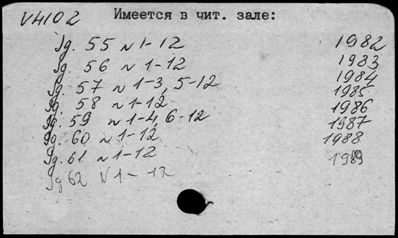 V4102 Имеется в чит. зале:
Jg. 55 N 1-12 1982
Jg. 56 N 1-12 1983
Jg. 57 N 1-3, 5-12 1984
Jg. 58 N 1-12 1985
Jg. 59 N 1-4, 6-12 1986
Jg. 60 N 1-12 1987
Jg. 61 N 1-12 1988
Jg 62 N 1-12 1989